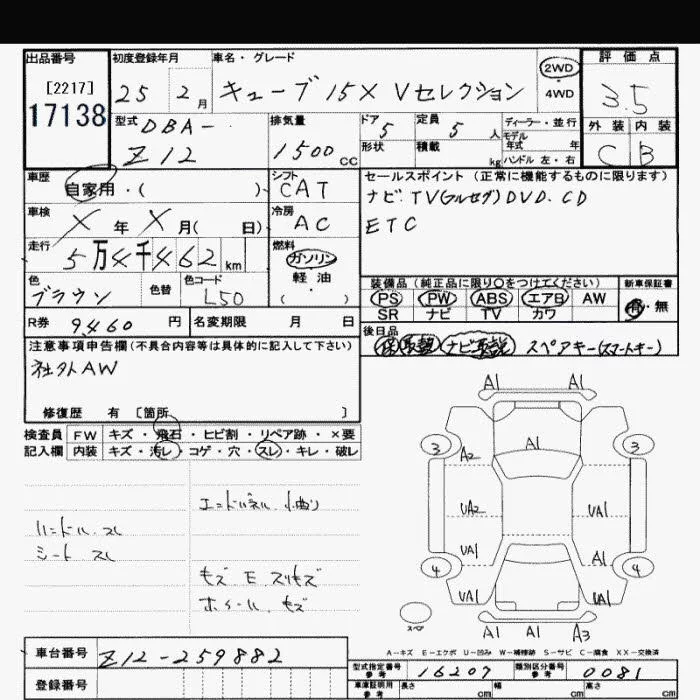 出品番号 初度登録年月 車名・グレード 評価点
[2217]
17138
25 2月 キューブ 15X Vセレクション 2WD・4WD 3.5
型式 DBA-Z12
排気量 1500cc
ドア 5 定員 5人
形状 積載 kg
ディーラー・並行
モデル年式 年
ハンドル 左・右
外装 内装
C B
車歴 自家用・( )
シフト CAT
セールスポイント(正常に機能するものに限ります)
ナビ・TV(フルセグ)DVD.CD
ETC
車検 X年X月( 日)
冷房 AC
走行 5万4千462km
燃料 ガソリン
軽油
・( )
色 ブラウン 色替 色コード L50
装備品(純正品に限り○をつけてください) 新車保証書
PS PW ABS エアB AW 有・無
SR ナビ TV カワ
R券 9460円 名変期限 月 日
後日品
保 取説 ナビ取説 スペアキー(スマートキー)
注意事項申告欄(不具合内容等は具体的に記入して下さい)
社外AW
修復歴 有 [箇所 ]
検査員記入欄
FW キズ・飛石・ヒビ割・リペア跡・×要
内装 キズ・汚レ・コゲ・穴・スレ・キレ・破レ
エンドパネル 小曲り
ハンドル スレ
シート スレ
キズ E スリキズ
ホイール キズ
A1 A1
3 3
A2 A1
UA2 UA1
UA1 A1
4 4
UA1 UA1
スペア
A1 A1 A3
A-キズ E-エクボ U-凹み W-補修跡 S-サビ C-腐食 XX-交換済
車台番号 Z12-259882
型式指定番号 参考 16207 類別区分番号 参考 0081
登録番号
車庫証明用 参考 長さ cm 幅 cm 高さ cm